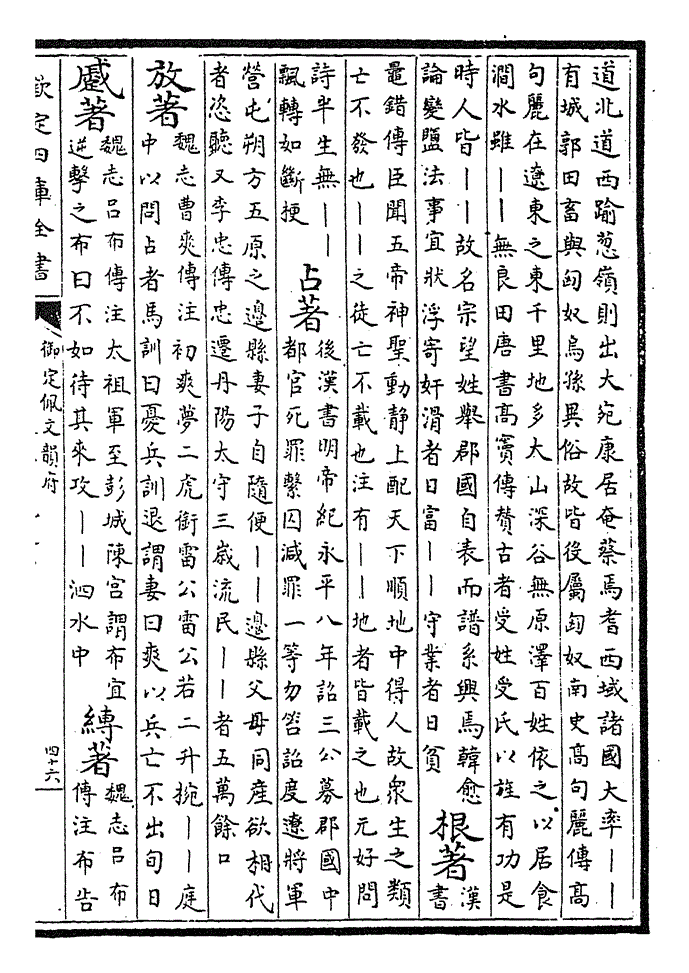 道北道西踰葱嶺則出大宛康居奄蔡焉耆西域諸國大率丨丨
有城郭田畜與匈奴烏孫異俗故皆役屬匈奴南史高句麗傳高
句麗在遼東之東千里地多大山深谷無原澤百姓依之以居食
澗水雖丨丨無良田唐書高竇傳賛古者受姓受氏以旌有功是
時人皆丨丨故名宗望姓舉郡國自表而譜系興焉韓愈
論變鹽法事宜狀浮寄奸滑者日富丨丨守業者日貧
根著
漢
書
鼂錯傳臣聞五帝神聖動静上配天下順地中得人故衆生之類
亡不發也丨丨之徒亡不載也注有丨丨地者皆載之也元好問
詩半生無丨丨
飄轉如斷梗
占著
後漢書明帝紀永平八年詔三公募郡國中
都官死罪繫囚減罪一等勿笞詔度遼將軍
營屯朔方五原之邊縣妻子自隨便丨丨邊縣父母同産欲相代
者恣聽又李忠傳忠遷丹陽太守三歳流民丨丨者五萬餘口
放著
魏志曹爽傳注初爽夢二虎銜雷公雷公若二升捥丨丨庭
中以問占者馬訓曰憂兵訓退謂妻曰爽以兵亡不出旬日
蹙著
魏志吕布傳注太祖軍至彭城陳宮謂布宜
逆擊之布曰不如待其來攻丨丨泗水中
縛著
魏志吕布
傳注布告
欽定四庫全書
御定佩文韻府
四十六